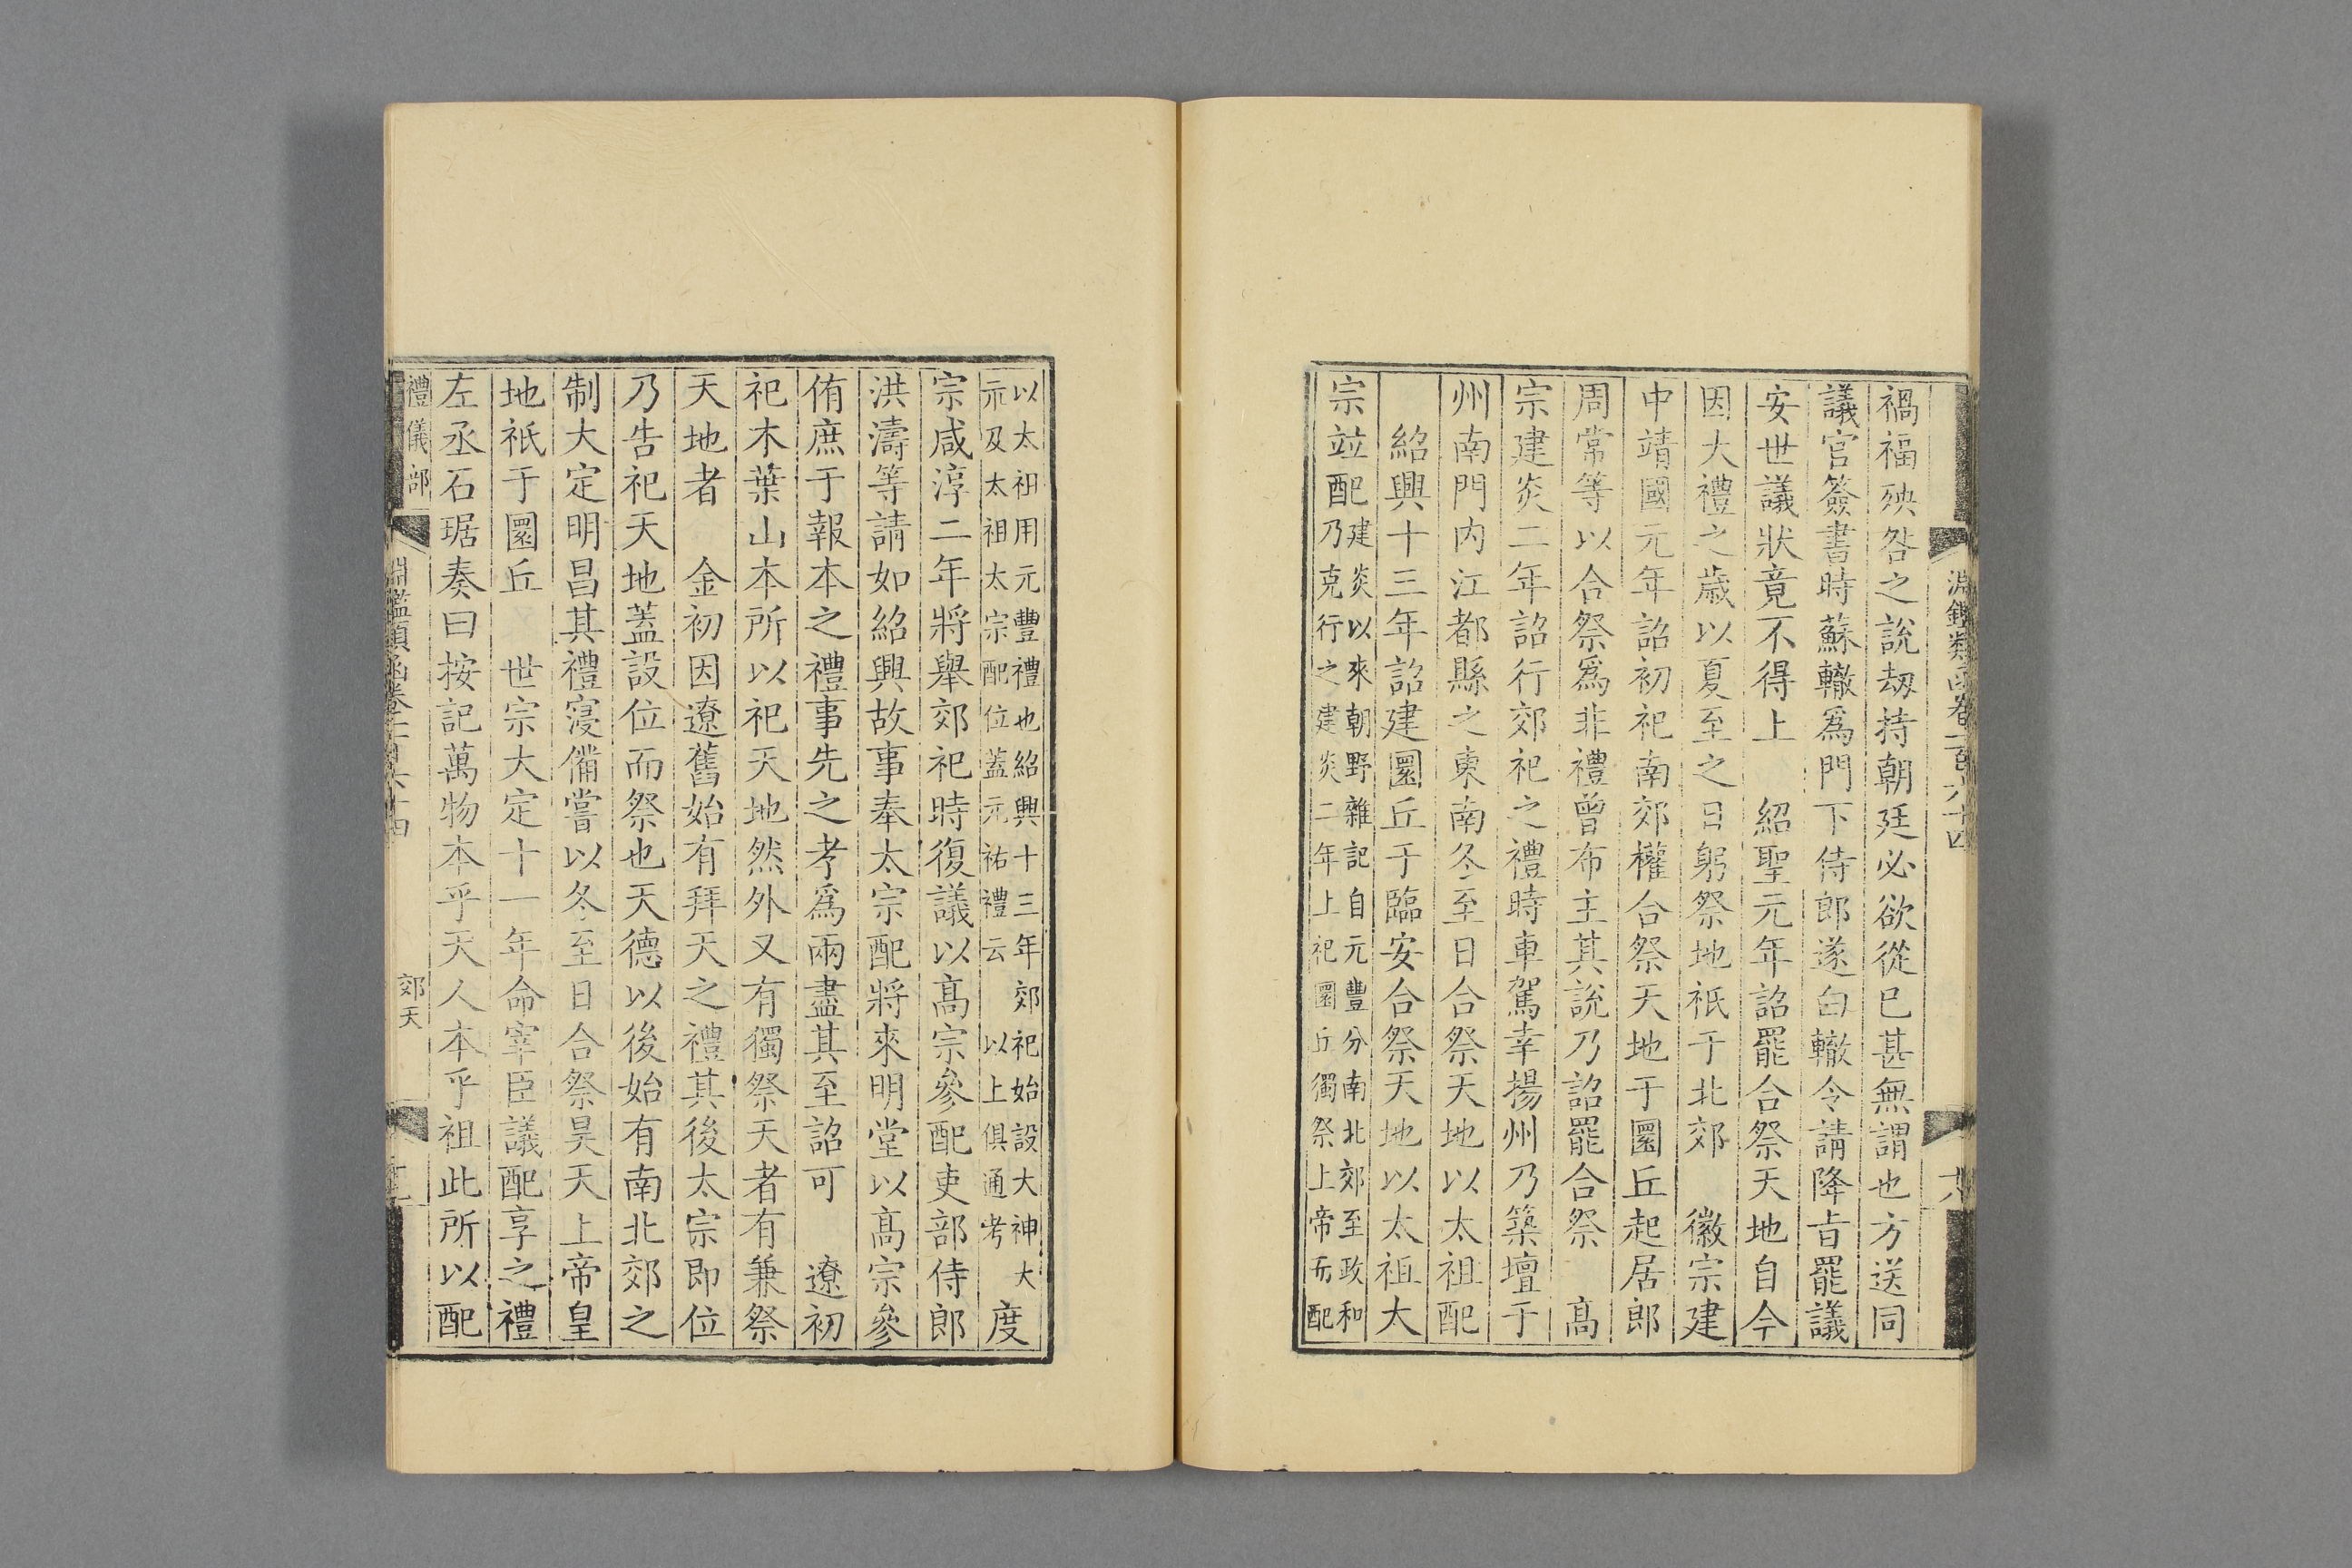 禍福殃咎之說劫持朝廷必欲從巳甚無謂也方送同
議官簽書時蘇轍爲門下侍郎遂白轍令請降旨罷議
安世議狀竟不得上　紹聖元年詔罷合祭天地自今
因大禮之歲以夏至之日躬祭地祇于北郊　徽宗建
中靖國元年詔初祀南郊權合祭天地于圜丘起居郎
周常等以合祭爲非禮曾布主其說乃詔罷合祭　高
宗建炎二年詔行郊祀之禮時車駕幸揚州乃築壇于
州南門內江都縣之東南冬至日合祭天地以太祖配
紹興十三年詔建圜丘于臨安合祭天地以太祖大
宗竝配
建炎以來朝野雜記自元豐分南北郊至政和
乃克行之建炎二年上祀圜丘獨祭上帝而配
淵鑑類函卷一百六十四
十八
以太祖用元豐禮也紹興十三年郊祀始設大神大
示及太祖太宗配位蓋元祐禮云　以上俱通考
度
宗咸淳二年將舉郊祀時復議以高宗參配吏部侍郎
洪濤等請如紹興故事奉太宗配將來明堂以高宗參
侑庶于報本之禮事先之孝爲兩盡其至詔可　遼初
祀木葉山本所以祀天地然外又有獨祭天者有兼祭
天地者　金初因遼舊始有拜天之禮其後太宗即位
乃告祀天地蓋設位而祭也天德以後始有南北郊之
制大定明昌其禮寖備嘗以冬至日合祭昊天上帝皇
地祇于圜丘　世宗大定十一年命宰臣議配享之禮
左丞石琚奏曰按記萬物本乎天人本乎祖此所以配
禮儀部
淵鑑類函卷一百六十四
郊天